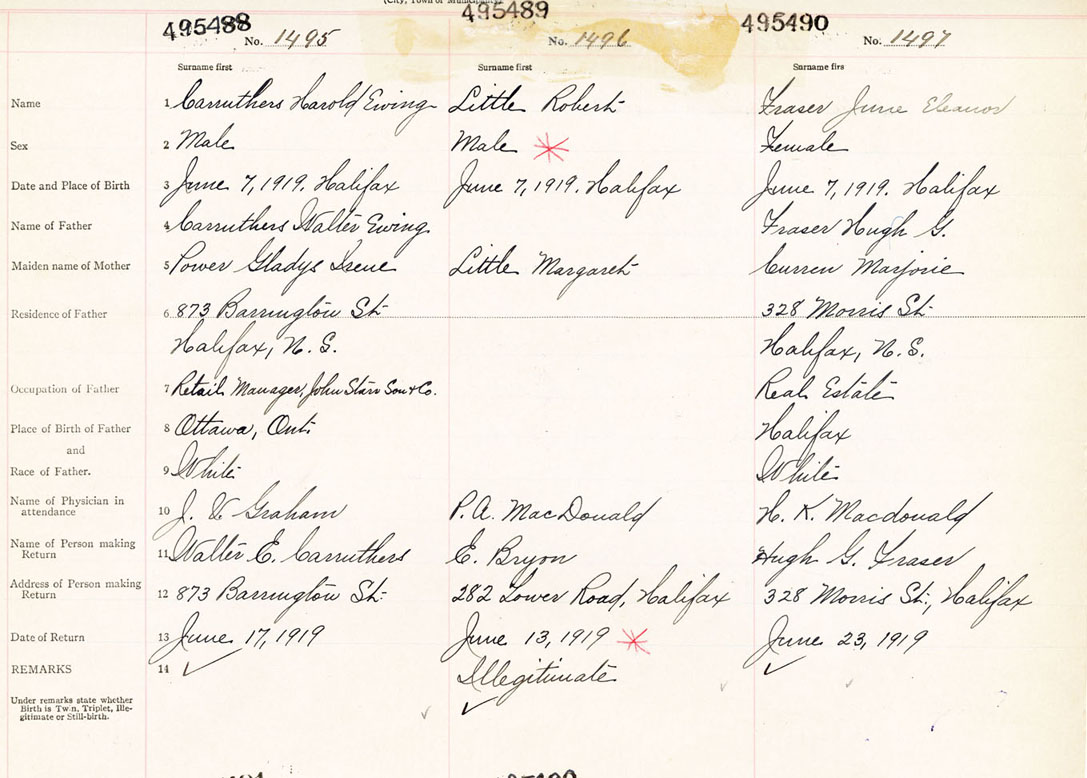 (City, Town or Municipality)
495488 495489 495490
No. 1495 No. 1496 No. 1497
Surname first Surname first Surname firs
Name 1 Carruthers Harold Ewing Little Robert Fraser June Eleanor
Sex 2 Male Male Female
Date and Place of Birth 3 June 7, 1919. Halifax June 7, 1919. Halifax June 7, 1919. Halifax
Name of Father 4 Carruthers Walter Ewing Fraser Hugh G.
Maiden name of Mother 5 Power Gladys Irene Little Margaret Curren Marjorie
Residence of Father 6 873 Barrington St. 328 Morris St.
Halifax, N.S. Halifax, N.S.
Occupation of Father 7 Retail Manager, John Starr Son & Co. Real Estate
Place of Birth of Father 8 Ottawa, Ont. Halifax
and
Race of Father. 9 White White
Name of Physician in
attendance 10 J. V. Graham P.A. MacDonald H. K. Macdonald
Name of Person making
Return 11 Walter E. Carruthers E. Bryon Hugh G. Fraser
Address of Person making
Return 12 873 Barrington St. 282 Tower Road, Halifax 328 Morris St., Halifax
Date of Return 13 June 17, 1919 June 13, 1919 June 23, 1919
REMARKS 14 Illegitimate
Under remarks state whether
Birth is Twin, Triplet, Ille-
gitimate or Still-birth.